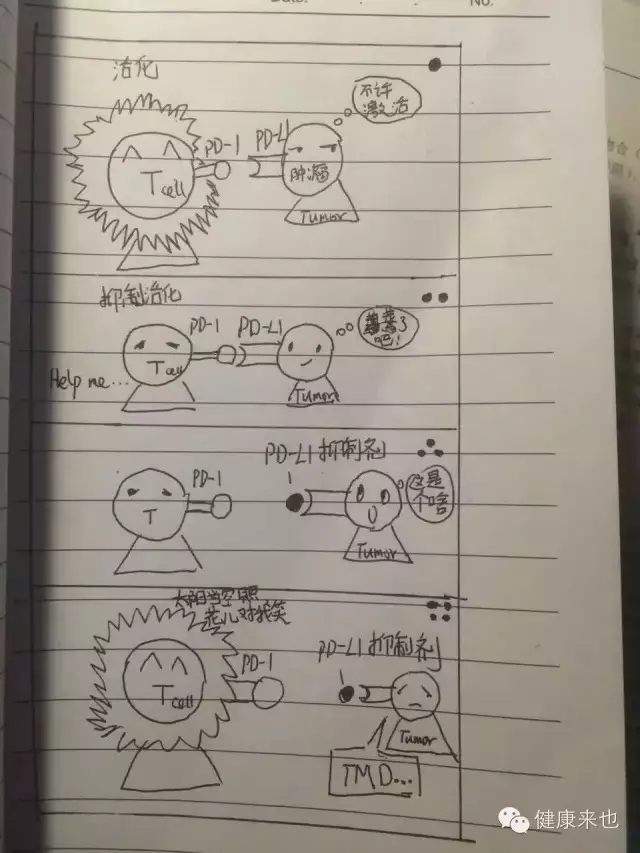 No.
活化
不许
激活
PD-1
PD-L1
T cell
肿瘤
Tumor
抑制活化
PD-1
PD-L1
蔫了
吧!
T cell
Help me...
Tumor
PD-L1抑制剂
PD-1
这是
个啥
T
Tumor
太阳当空照
花儿对我笑
PD-1
PD-L1抑制剂
T cell
Tumor
TMD...
健康来也